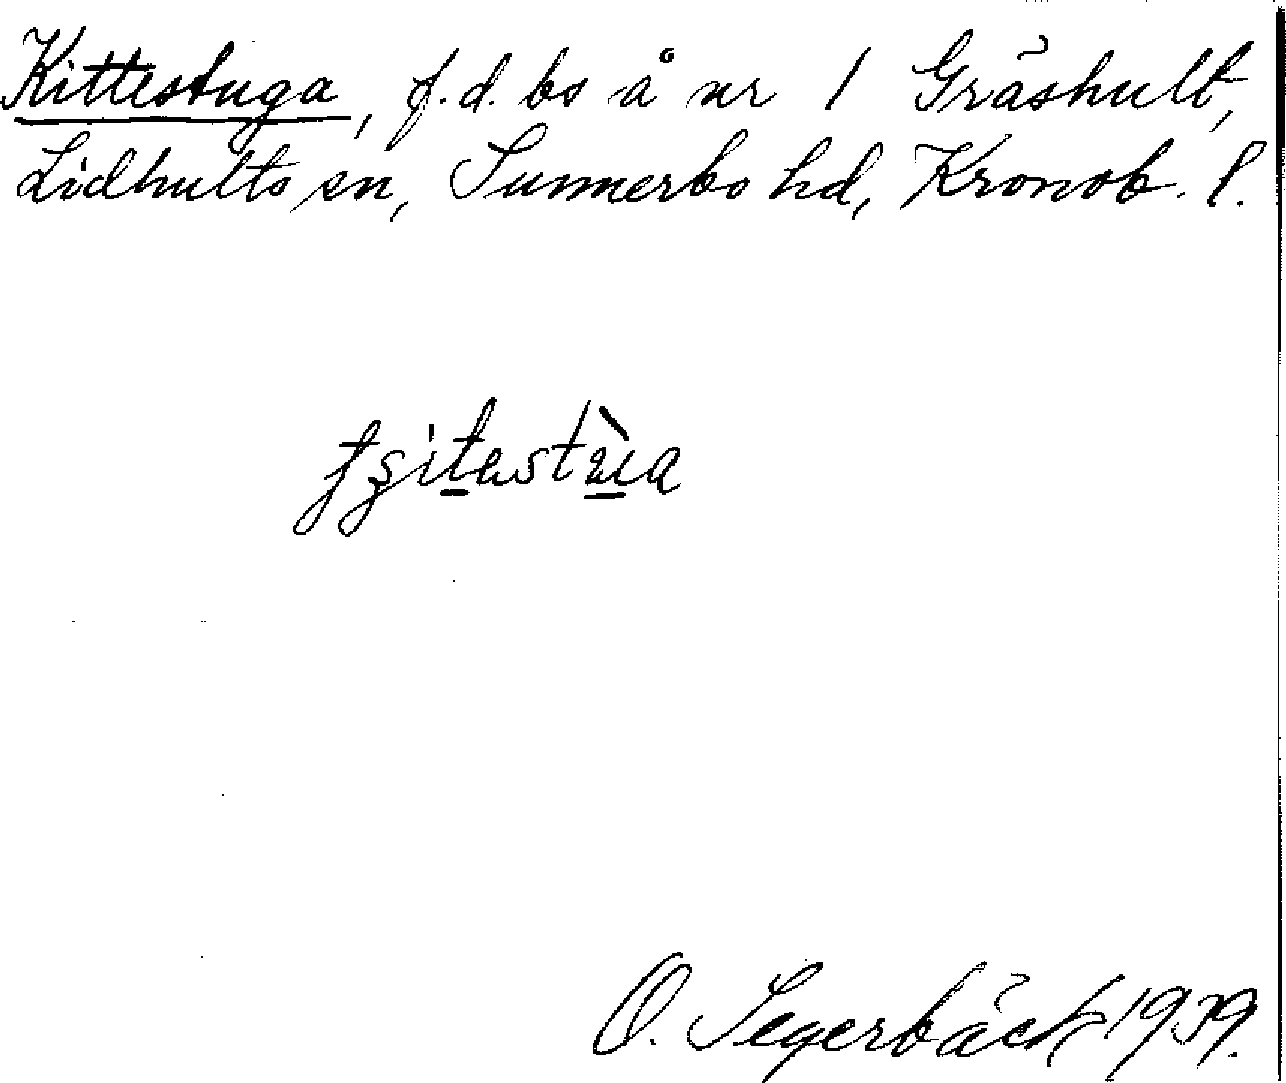 Kittestuga, f.d. bs å nr 1 Gräshult,
Lidhults sn, Sunnerbo hd, Kronob. l.
O. Segerbäck 1939.